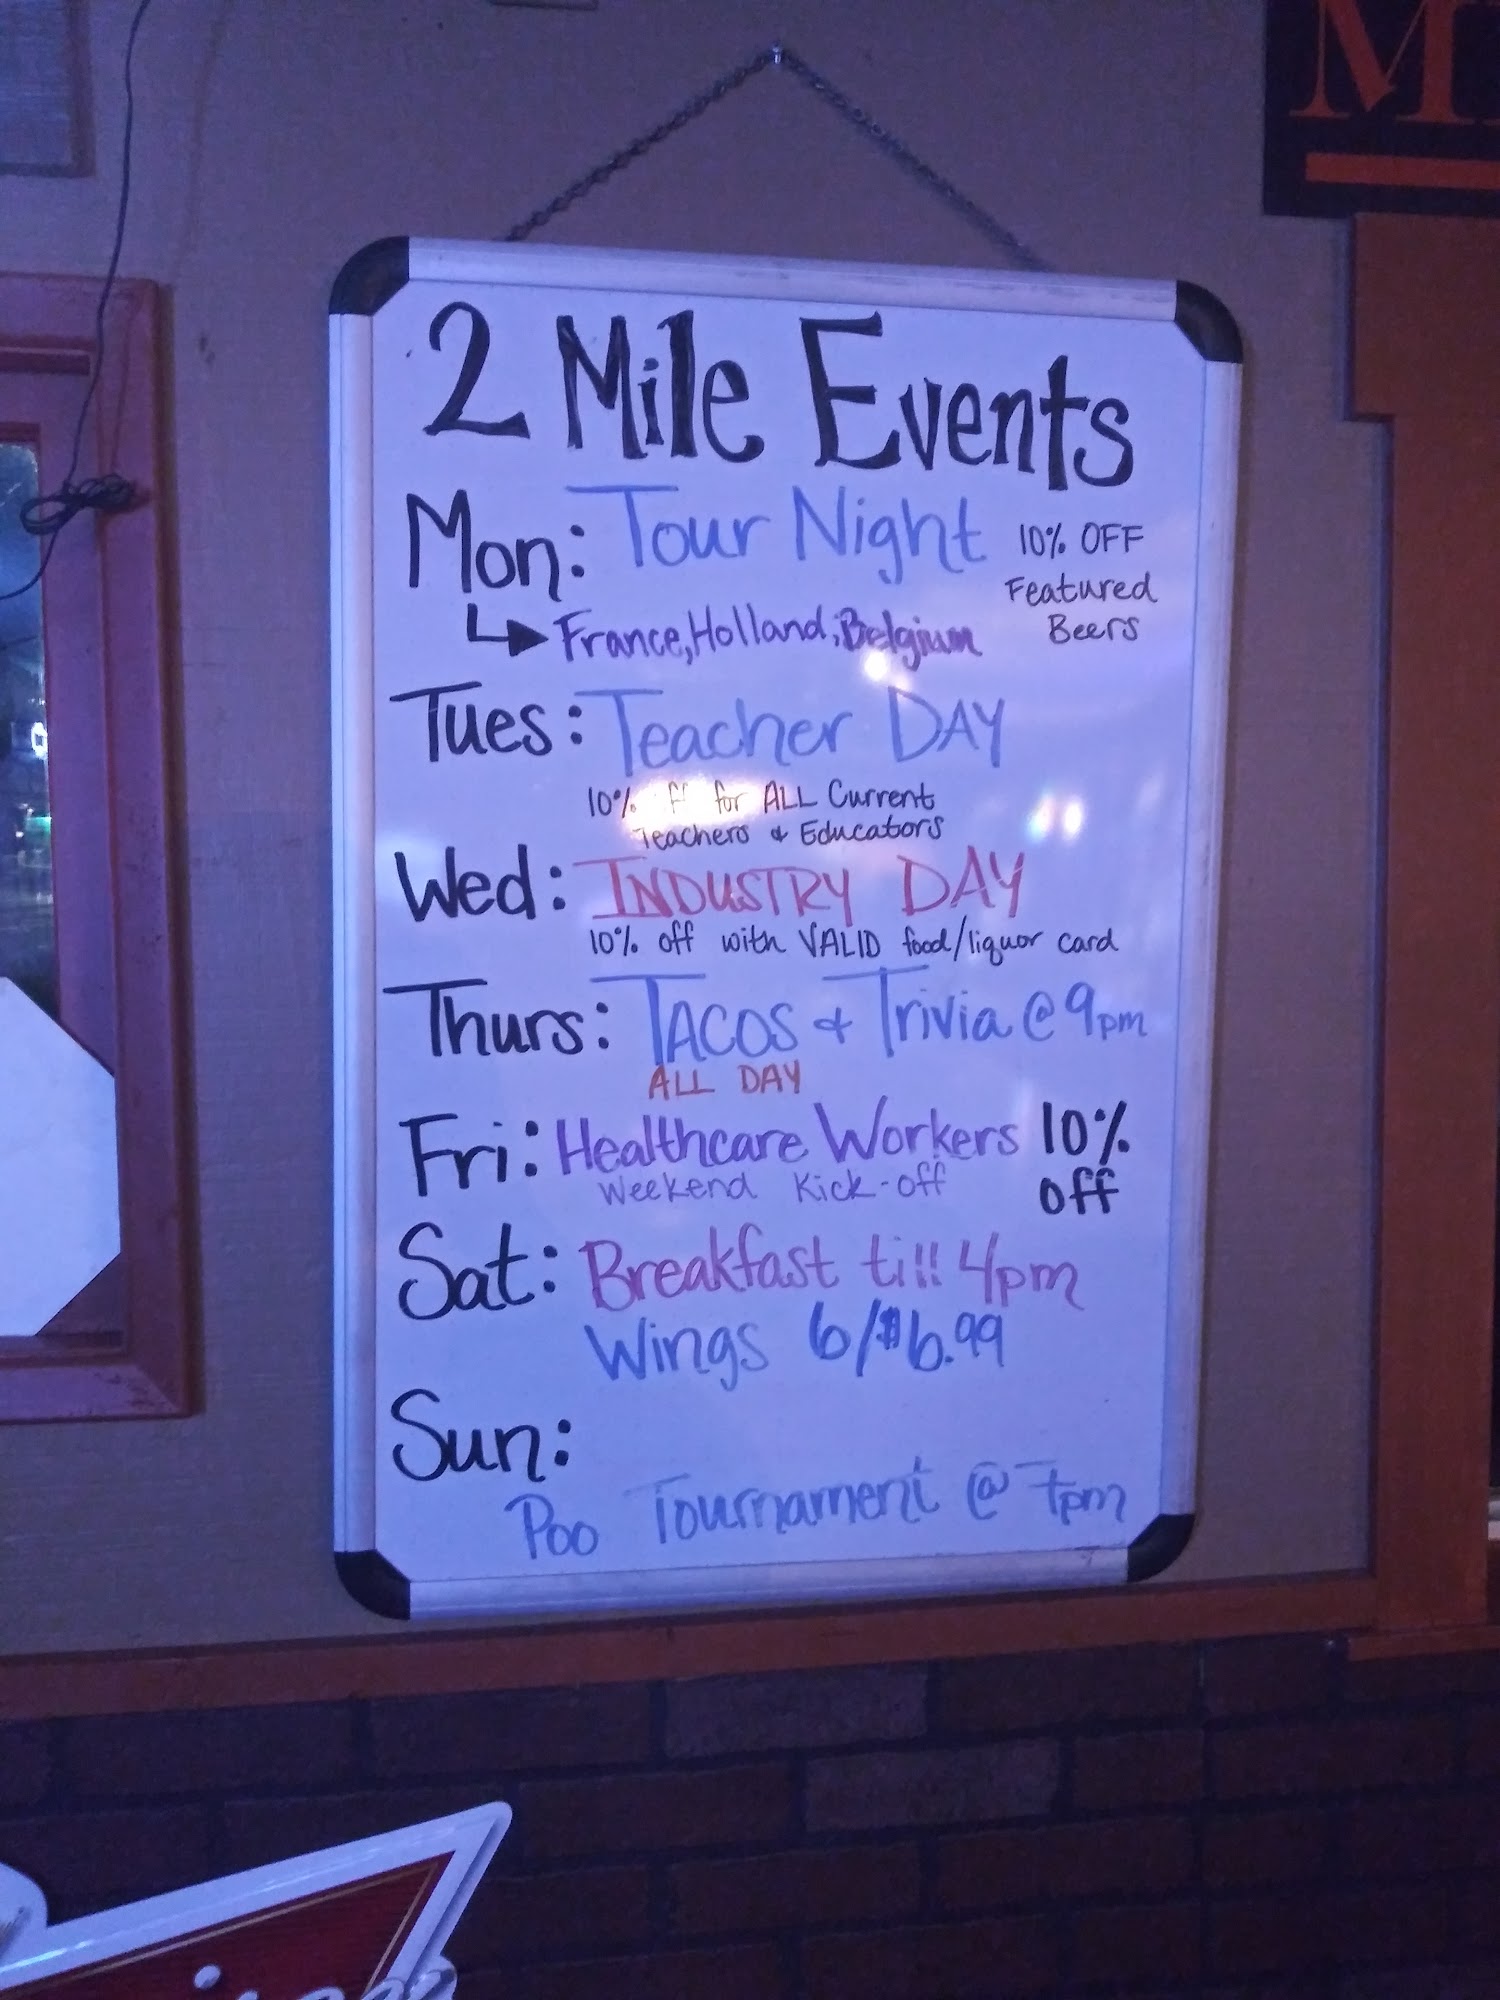 2 Mile Events
Mon: Tour Night 10% OFF
Featured
Beers
France, Holland, Belgium
Tues: Teacher DAY
10% ff for ALL Current
Teachers & Educators
Wed: INDUSTRY DAY
10% off with VALID food/liquor card
Thurs: TACOS & Trivia @ 9pm
ALL DAY
Fri: Healthcare Workers 10%
off
Weekend Kick-off
Sat: Breakfast till 4pm
Wings 6/$6.99
Sun:
Poo Tournament @ 7pm
M